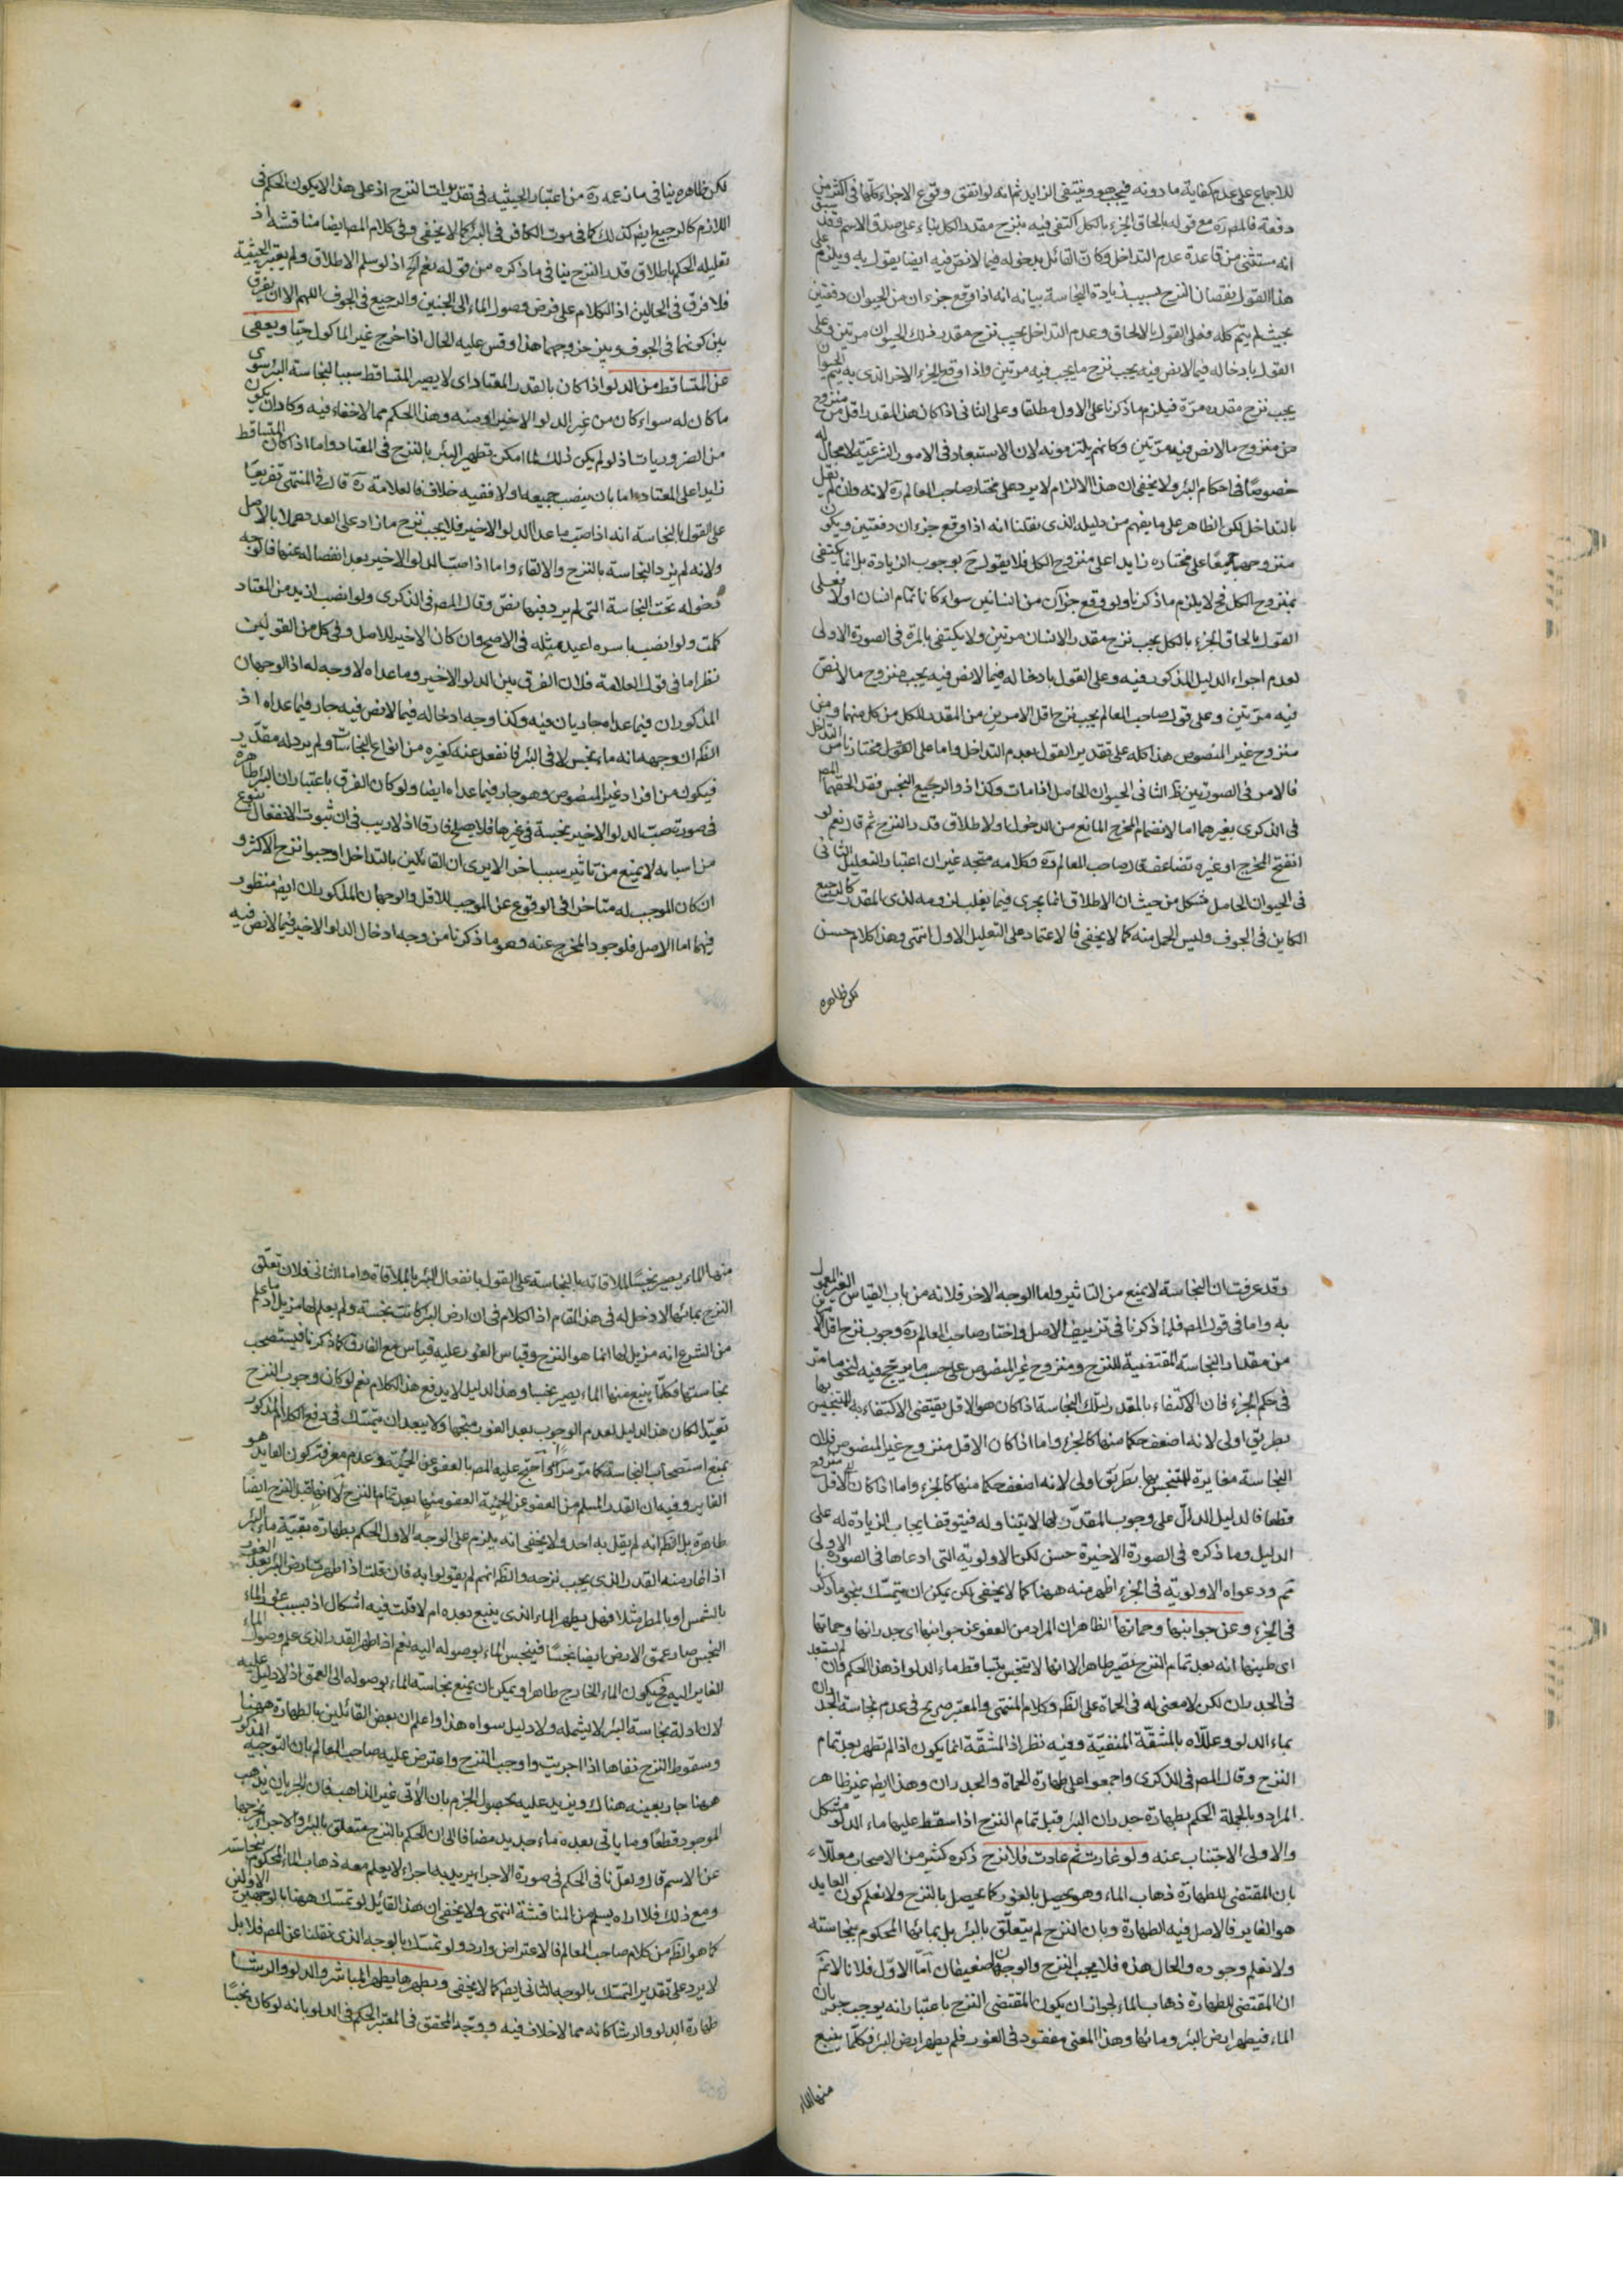 للاجماع على عدم كفاية ما دونه فيجب هو وينتفى الزايد ثم انه لو اتفق وقوع الاجزاء كلها فى اكثر من
دفعة فالمص ره مع قوله بالحاق الجزء بالكل اكتفى فيه بنزح مقدر الكل بناء على صدق الاسم فقد سبق
انه مستثنى من قاعدة عدم التداخل وكان القائل بدخوله فيما لا نص فيه ايضا يقول به ويلزم على
هذا القول نقصان النزح بسبب زيادة النجاسة بيانه انه اذا وقع جزءان من الحيوان دفعتين
بحيث لم يتم كله فعلى القول بالالحاق وعدم التداخل يجب نزح مقدر ذلك الحيوان مرتين وعلى
القول بادخاله فيما لا نص فيه يجب نزح ما يجب فيه مرتين واذا وقع الجزء الاخر الذى به يتم الحيوان
يجب نزح مقدره مرة فيلزم ما ذكرنا على الاول مطلقا وعلى الثانى اذا كان هذا المقدر اقل من منزوح
من منزوح ما لا نص فيه مرتين وكانهم يلتزمونه لان الاستبعاد فى الامور الشرعية لا مجال له
خصوصا فى احكام البئر ولا يخفى ان هذا الالزام لا يرد على مختار صاحب المعالم ره لانه وان لم يقل
بالتداخل لكن الظاهر على ما يفهم من دليله الذى نقلنا انه اذا وقع جزءان دفعتين ويكون
منزوحهما جميعا على مختاره زايدا على منزوح الكل فلا يقول ح بوجوب الزيادة بل انما يكتفى
بمنزوح الكل فح لا يلزم ما ذكرنا ولو وقع جزآن من انسانين سواء كانا تمام انسان او لا فعلى
القول بالحاق الجزء بالكل يجب نزح مقدر الانسان مرتين ولا يكتفى بالمرة فى الصورة الاولى
لعدم اجراء الدليل المذكور فيه وعلى القول بادخاله فيما لا نص فيه يجب منزوح ما لا نص
فيه مرتين وعلى قول صاحب المعالم يجب نزح اقل الامرين من المقدر للكل من كل منهما ومن
منزوح غير المنصوص هذا كله على تقدير القول بعدم التداخل واما على القول مختارنا من التداخل
فالامر فى الصورتين ظ الثانى الحيوان الحامل اذا مات وكذا ذو الرجيع النجس فقد الحقهما المص
فى الذكرى بغيرهما اما لانضمام المخرج المانع من الدخول او لاطلاق قدر النزح ثم قال نعم لو
انفتح المخرج او غيره تضاعف قال صاحب المعالم ره وكلامه متجه غير ان اعتبار التعليل الثانى
فى الحيوان الحامل مشكل من حيث ان الاطلاق انما يجرى فيما يغلب لزومه لذى المقدر كالرجيع
الكاين فى الجوف وليس الحمل منه كما لا يخفى فالاعتماد على التعليل الاول انتهى وهذا كلام حسن
لكن ظاهره
لكن ظاهره ينافى ما نعهده ره من اعتبار الحيثيه فى تقديرات النزح اذ على هذا لا يكون الحكم فى
اللازم كالرجيع ايض كذلك كما فى موت الكافر فى البئر كما لا يخفى وفى كلام المص ايضا مناقشة اذ
تعليله الحكم باطلاق قدر النزح ينافى ما ذكره من قوله نعم الخ اذ لو سلم الاطلاق ولم يعتبر الحيثية
فلا فرق فى الحالين اذ الكلام على فرض وصول الماء الى الجنين والرجيع فى الجوف اللهم الا ان يفرق
بين كونهما فى الجوف وبين خروجهما هذا وقس عليه الحال اذا خرج غير الماكول حيا ويعفى
عن المتساقط من الدلو اذا كان بالقدر المعتاد اى لا يصير المتساقط سببا لنجاسة البئر سوى
ما كان له سواء كان من غير الدلو الاخير او منه وهذا الحكم مما لا خفاء فيه وكاد ان يكون
من الضروريات اذ لو لم يكن ذلك لما امكن تطهير البئر بالنزح فى المعتاد واما اذا كان المتساقط
زايدا على المعتاد اما بان ينصب جميعه او لا ففيه خلاف فالعلامة ره قال فى المنتهى تفريعا
على القول بالنجاسة انه اذا صب ما عدا الدلو الاخير فلا يجب نزح ما زاد على العدد عملا بالاصل
ولانه لم يزد النجاسة بالنزح والالقاء واما اذا صب الدلو الاخير بعد انفصاله عنها فالوجه
دخوله تحت النجاسة التى لم يرد فيها نص وقال المص فى الذكرى ولو انصب ازيد من المعتاد
كملت ولو انصب باسره اعيد مثله فى الاصح وان كان الاخير للاصل وفى كل من القولين
نظر اما فى قول العلامة فلان الفرق بين الدلو الاخير وما عداه لا وجه له اذ الوجهان
المذكوران فيما عداه جاريان فيه وكذا وجه ادخاله فيما لا نص فيه جار فيما عداه اذ
الظ ان وجهه انه ماء نجس لاقى البئر فانفعل عنه كغيره من انواع النجاسات ولم يرد له مقدر
فيكون من افراد غير المنصوص وهو جار فيما عداه ايضا ولو كان الفرق باعتبار ان البئر طاهرة
فى صورة صب الدلو الاخير نجسة فى غيرها فلا يصلح فارقا اذ لا ريب فى ان ثبوت الانفعال بنوع
من اسبابه لا يمنع من تاثير سبب اخر الا يرى ان القائلين بالتداخل اوجبوا نزح الاكثر و
ان كان الموجب له متاخرا فى الوقوع عن الموجب للاقل والوجهان المذكوران ايض منظور
فيهما اما الاصل فلوجود المخرج عنه وهو ما ذكرنا من وجه ادخال الدلو الاخير فيما لا نص فيه
وقد عرفت ان النجاسة لا يمنع من التاثير واما الوجه الاخر فلانه من باب القياس الغير المعمول
به واما فى قول المص فلما ذكرنا فى تزييف الاصل واختار صاحب المعالم ره وجوب نزح اقل الامرين
من مقدار النجاسة المقتضية للنزح ومنزوح غير المنصوص على حسب ما يرجح فيه لنحو ما مر
فى حكم الجزء فان الاكتفاء بالمقدر لتلك النجاسة اذا كان هو الاقل يقتضى الاكتفاء به للمتنجس بها
بطريق اولى لانه اضعف حكما منها كالجزء واما اذا كان الاقل منزوح غير المنصوص فلان
النجاسة مغايرة للمتنجس بها بطريق اولى لانه اضعف حكما منها كالجزء واما اذا كان الاقل منزوح
قطعا فالدليل الدال على وجوب المقدر لها لا يتناوله فيتوقف ايجاب الزيادة له على
الدليل وما ذكره فى الصورة الاخيرة حسن لكن الاولوية التى ادعاها فى الصورة الاولى
ثم ودعواه الاولوية فى الجزء اظهر منه ههنا كما لا يخفى لكن يمكن ان يتمسك بنحو ما ذكرنا
فى الجزء وعن جوانبها وحماتها الظاهر ان المراد من العفو عن جوانبها اى جدرانها وحماتها
اى طينها انه بعد تمام النزح تصير طاهرا لا انها لا يتنجس بتساقط ماء الدلو اذ هذا الحكم وان لم يستبعد
فى الجدران لكن لا معنى له فى الحماة على الظ وكلام المنتهى والمعتبر صريح فى عدم نجاسة الجدران
بماء الدلو وعللاه بالمشقة المنفية وفيه نظر اذ المشقة انما يكون اذا لم تطهر بعد تمام
النزح وقال المص فى الذكرى واجمعوا على طهارة الحماة والجدران وهذا ايض غير ظاهر
المراد وبالجملة الحكم بطهارة جدران البئر قبل تمام النزح اذا سقط عليها ماء الدلو مشكل
والاولى الاجتناب عنه ولو غارت ثم عادت فلا نزح ذكره كثير من الاصحاب معللا
بان المقتضى للطهارة ذهاب الماء وهو يحصل بالغور كما يحصل بالنزح ولا نعلم كون العايد
هو الغاير فالاصل فيه الطهارة وبان النزح لم يتعلق بالبئر بل بمائها المحكوم بنجاسته
ولا نعلم وجوده والحال هذه فلا يجب النزح والوجهان ضعيفان اما الاول فلانا لا نم
ان المقتضى للطهارة ذهاب الماء لجواز ان يكون المقتضى النزح باعتبار انه يوجب جريان
الماء فيطهر ارض البئر ومائها وهذا المعنى مفقود فى الغور فلم يطهر ارض البئر فكلما ينبع
منها الماء
منها الماء يصير نجسا لملاقاته بالنجاسة على القول بانفعال البئر بالملاقاة واما الثانى فلان تعلق
النزح بمائها لا دخل له فى هذا المقام اذ الكلام فى ان ارض البئر كانت نجسة ولم يعلم لها مزيل اذ ما علم
من الشرع انه مزيل لها انما هو النزح وقياس الغور عليه قياس مع الفارق كما ذكرنا فيستصحب
نجاستها فكلما ينبع منها الماء يصير نجسا وهذا الدليل لا يدفع هذا الكلام نعم لو كان وجوب النزح
تعبدا لكان هذا الدليل لعدم الوجوب بعد الغور متجها ولا يبعد ان يتمسك فى دفع الكلام المذكور
بمنع استصحاب النجاسة كما مر مرارا احتج عليه المص بالعفو عن الحمأة وعدم معرفة كون العايد هو
الغاير وفيه ان القدر المسلم من العفو عن الحمئة العفو منها بعد تمام النزح لا انها قبل النزح ايضا
طاهرة بل الظ انه لم يقل به احد ولا يخفى انه يلزم على الوجه الاول الحكم بطهارة بقية ماء البئر
اذا غار منه القدر الذى يجب نزحه والظ انهم لم يقولوا به فان قلت اذا طهرت ارض البئر بعد الغور
بالشمس او بالمطر مثلا فهل يطهر الماء الذى ينبع بعده ام لا قلت فيه اشكال اذ بسبب غور الماء
النجس صار عمق الارض ايضا نجسا فينجس الماء بوصوله اليه نعم اذا طهر القدر الذى علم وصول الماء
الغاير اليه فح يكون الماء الخارج طاهرا ويمكن ان يمنع نجاسة الماء بوصوله الى العمق اذ لا دليل عليه
لان ادلة نجاسة البئر لا يشمله ولا دليل سواه هذا واعلم ان بعض القائلين بالطهارة ههنا
وسقوط النزح نفاها اذا اجريت واوجب النزح واعترض عليه صاحب المعالم بان التوجيه المذكور
ههنا جار بعينه هناك ويزيد عليه بحصول الجزم بان الآتى غير الذاهب فان الجريان يذهب
الموجود قطعا وما ياتى بعده ماء جديد مضافا الى ان الحكم بالنزح متعلق بالبئر والاجراء يخرجها
عن الاسم قال ولعلنا فى الحكم فى صورة الاجراء يريد به اجراء لا يعلم معه ذهاب الماء المحكوم بنجاسته
ومع ذلك فلا اراه يسلم من المناقشة انتهى ولا يخفى ان هذا القايل لو تمسك ههنا بالوجهين الاولين
كما هو الظ من كلام صاحب المعالم فالاعتراض وارد ولو تمسك بالوجه الذى نقلنا عن المص فلا بل
لا يرد على تقدير التمسك بالوجه الثانى ايض كما لا يخفى وبطهرها يطهر المباشر والدلو والرشا
طهارة الدلو والرشا كانه مما لا خلاف فيه ووجه المحقق فى المعتبر الحكم فى الدلو بانه لو كان نجسا